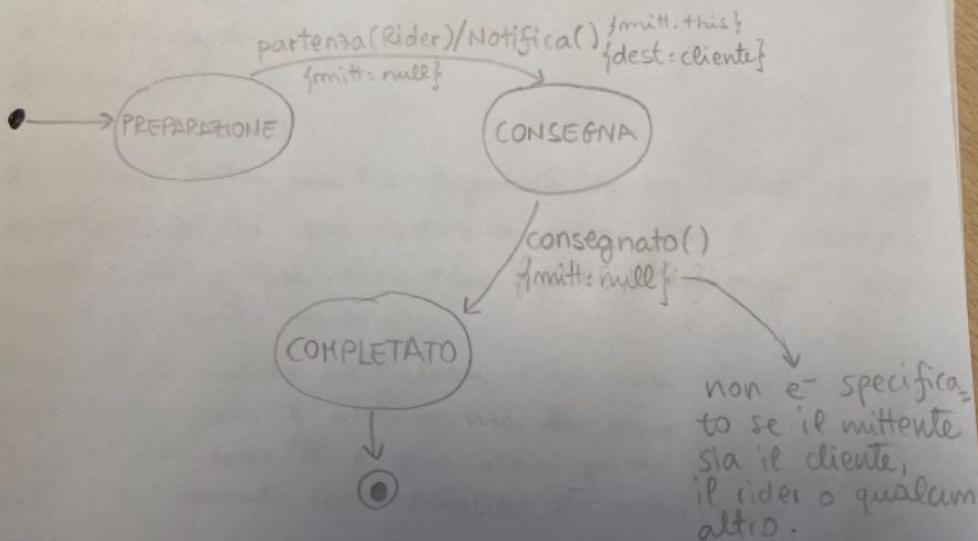 partenza(Rider)/Notifica() {mitt.this}
{dest:cliente}
{mitt:null}
PREPARAZIONE
CONSEGNA
consegnato()
{mitt:null}
COMPLETATO
non e- specifica=
to se il mittente
sia il cliente,
il rider o qualcun
altro.